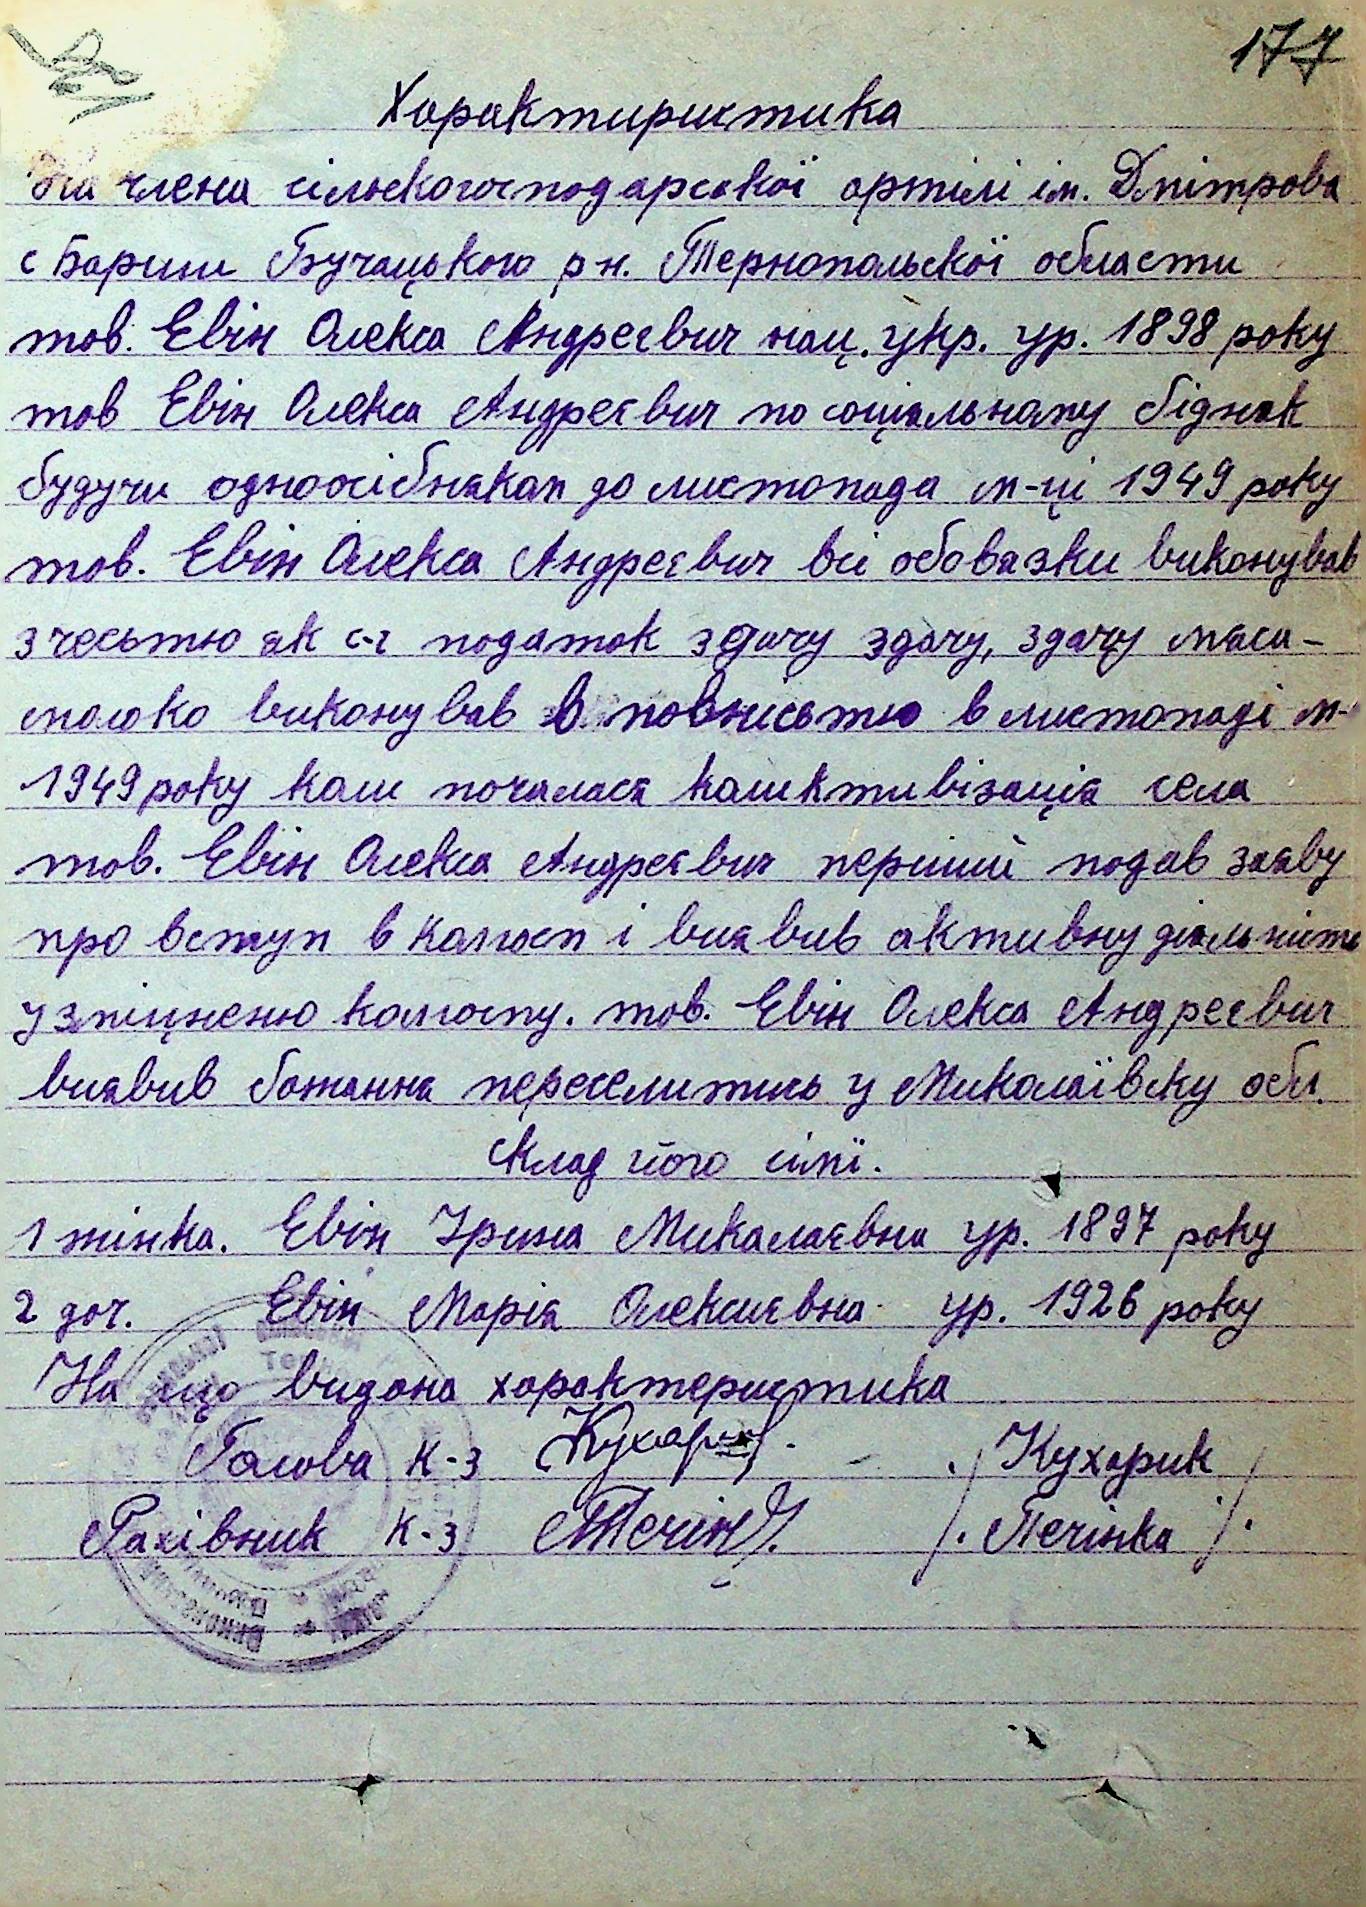 177
Характиристика
На члена сільскогосподарскої артілі ім. Дмітрова
с Бариш Бучацького рн. Тернопольскої области
тов. Евін Олекса Андреєвич нац. укр. ур. 1898 року
тов Евін Олекса Андреєвич по соціальному бідняк
будучи одноосібняком до листопада м-ці 1949 року
тов. Евін Олекса Андреєвич всі обовязки виконував
з чесьтю як с-г податок здачу здачу, здачу мяса-
молоко виконував в повнісьтю в листопаді м-
1949 року коли почалася коликтивізація села
тов. Евін Олекса Андреєвич перший подав заяву
про вступ в колгосп і виявив активну діяльність
у зміцненю колгоспу. тов. Евін Олекса Андреєвич
виявив бажання переселитись у Миколаївску обл.
Склад його сімї.
1 жінка. Евін Ірина Микалаєвна ур. 1897 року
2 доч. Евін Марія Олексиєвна ур. 1926 року
На що видона характеристика
Голова к-з Кухарик /. Кухорик /
Рахівник к-з Печінка /. Печінка /.